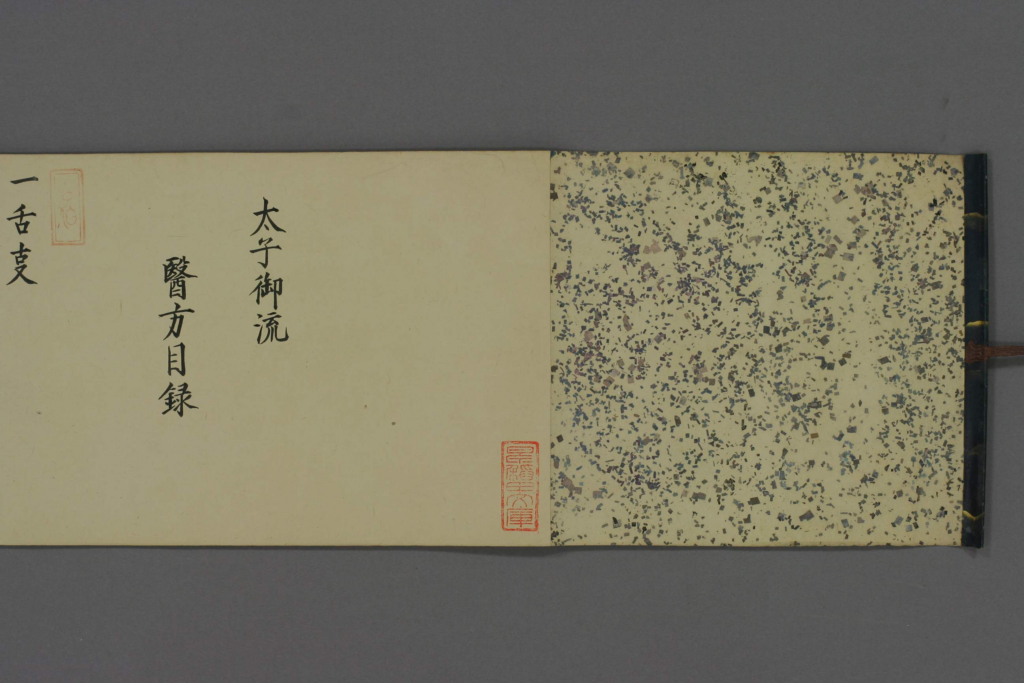 太子御流
醫方目録
一舌叓